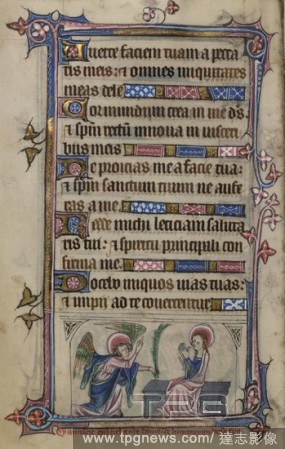 Averte faciem tuam a pecca
tis meis: et omnes iniquitates
meas dele
Cor mundum crea in me ds
et spm rectu innova in visceri
bus meis
Ne proicias me a facie tua:
et spm sanctum tuum ne aufe
ras a me
Redde michi leticiam saluta
ris tui: et spiritu principali con
firma me
Docebo iniquos vias tuas:
et impii ad te convertentur
TPG
www.tpgnews.com/ 達志影像